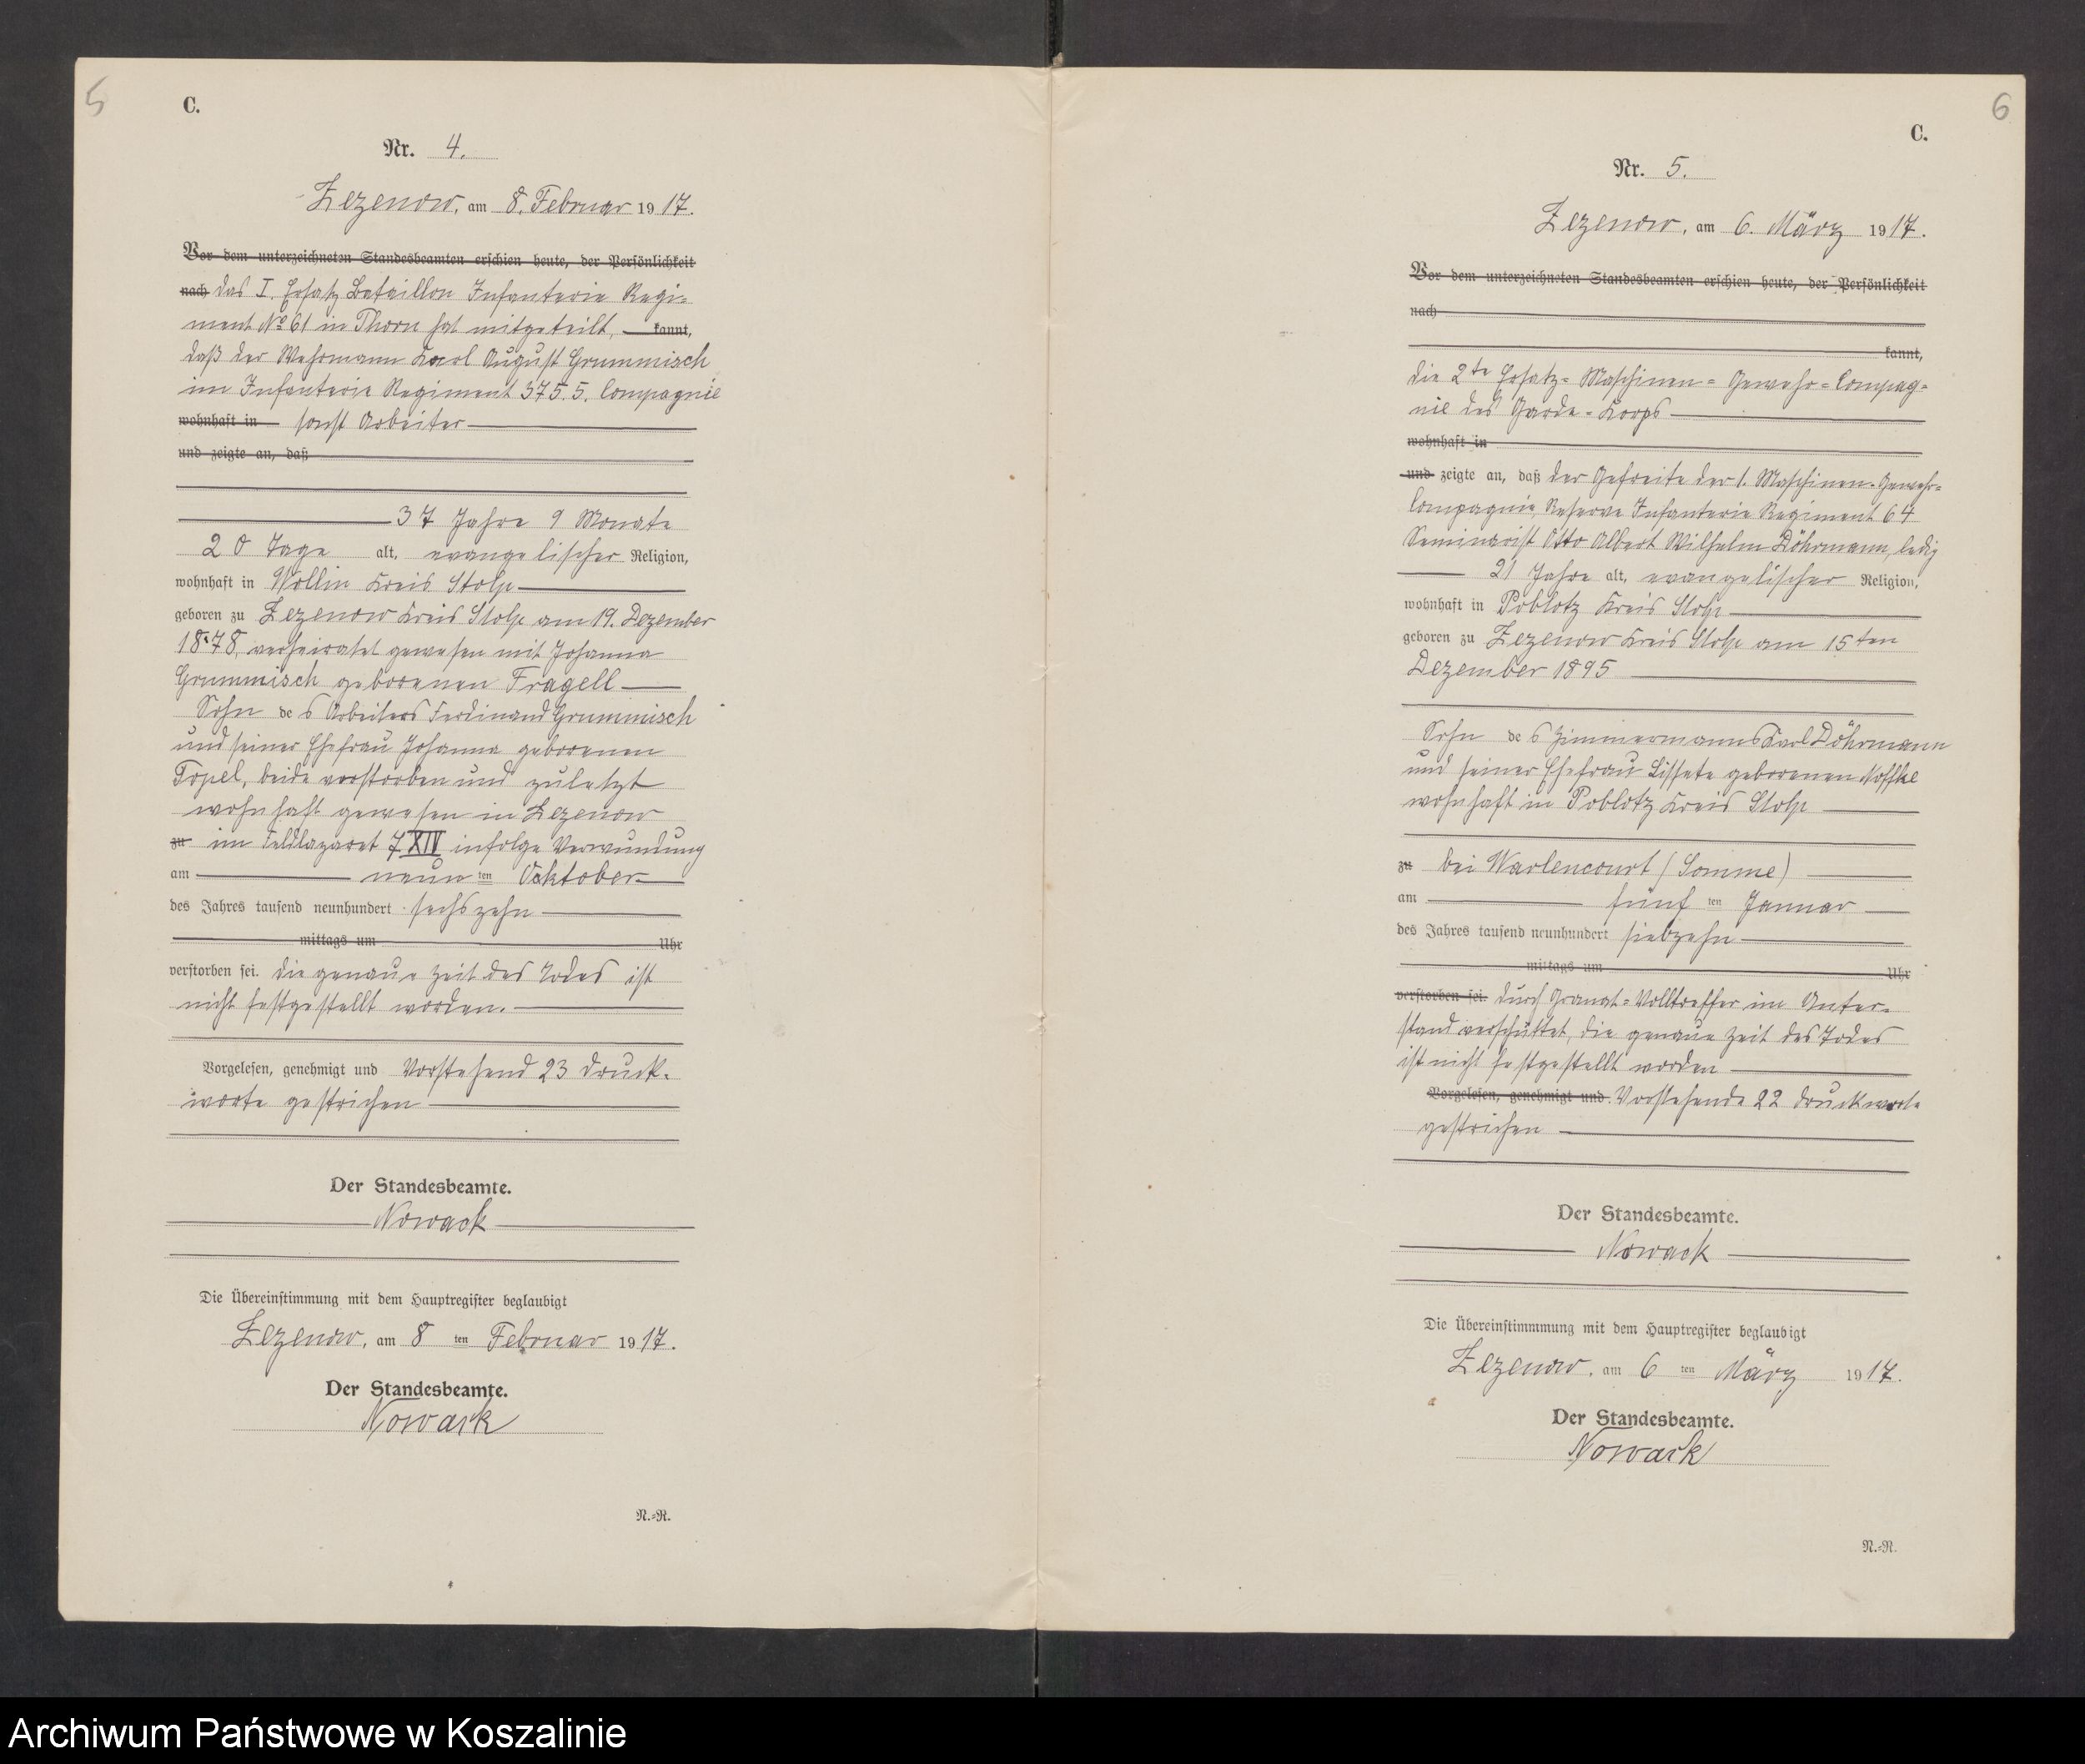 5
C.
Nr. 4.
Zezenow, am 8. Februar 1917.
Vor dem unterzeichneten Standesbeamten erschien heute, der Persönlichkeit
nach das I. Ersatz Bataillon Infanterie Regi-
ment No 61 in Thorn hat mitgeteilt, kannt,
daß der Wehrmann Karl August Grummisch
im Infanterie Regiment 375. 5. Compagnie
wohnhaft in sonst Arbeiter
und zeigte an, daß
37 Jahre 9 Monate
20 Tage alt, evangelischer Religion,
wohnhaft in Wollin Kreis Stolp
geboren zu Zezenow Kreis Stolp am 19. Dezember
1878, verheiratet gewesen mit Johanna
Grummisch geborenen Fragell
Sohn des Arbeiters Ferdinand Grummisch
und seiner Ehefrau Johanna geborenen
Topel, beide verstorben und zuletzt
wohnhaft gewesen in Zezenow
zu im Feldlazaret 7 XIV infolge Verwundung
am neun ten Oktober
des Jahres tausend neunhundert sechszehn
mittags um Uhr
verstorben sei. die genaue Zeit des Todes ist
nicht festgestellt worden.
Vorgelesen, genehmigt und Vorstehend 23 Druck-
worte gestrichen
Der Standesbeamte.
Nowack
Die Übereinstimmung mit dem Hauptregister beglaubigt
Zezenow, am 8 ten Februar 1917.
Der Standesbeamte.
Nowack
N.=R.
6
C.
Nr. 5.
Zezenow, am 6. März 1917.
Vor dem unterzeichneten Standesbeamten erschien heute, der Persönlichkeit
nach
kannt,
die 2te Ersatz= Maschinen= Gewehr= Compag-
nie des Garde= Korps
wohnhaft in
und zeigte an, daß der Gefreite der 1. Maschinen-Gewehr=
Compagnie, Reserve Infanterie Regiment 64
Seminarist Otto Albert Wilhelm Döhrmann, ledig
21 Jahre alt, evangelischer Religion,
wohnhaft in Poblotz Kreis Stolp
geboren zu Zezenow Kreis Stolp am 15ten
Dezember 1895
Sohn des Zimmermanns Karl Döhrmann
und seiner Ehefrau Lissete geborenen Noffke
wohnhaft in Poblotz Kreis Stolp
zu bei Warlencourt (Somme)
am fünf ten Januar
des Jahres tausend neunhundert siebzehn
mittags um Uhr
verstorben sei. durch Granat=Volltreffer im Unter-
stand verschüttet, die genaue Zeit des Todes
ist nicht festgestellt worden
Vorgelesen, genehmigt und. Vorstehende 22 Druckworte
gestrichen
Der Standesbeamte.
Nowack
Die Übereinstimmmung mit dem Hauptregister beglaubigt
Zezenow, am 6 ten März 1917.
Der Standesbeamte.
Nowack
N.=R.
Archiwum Państwowe w Koszalinie